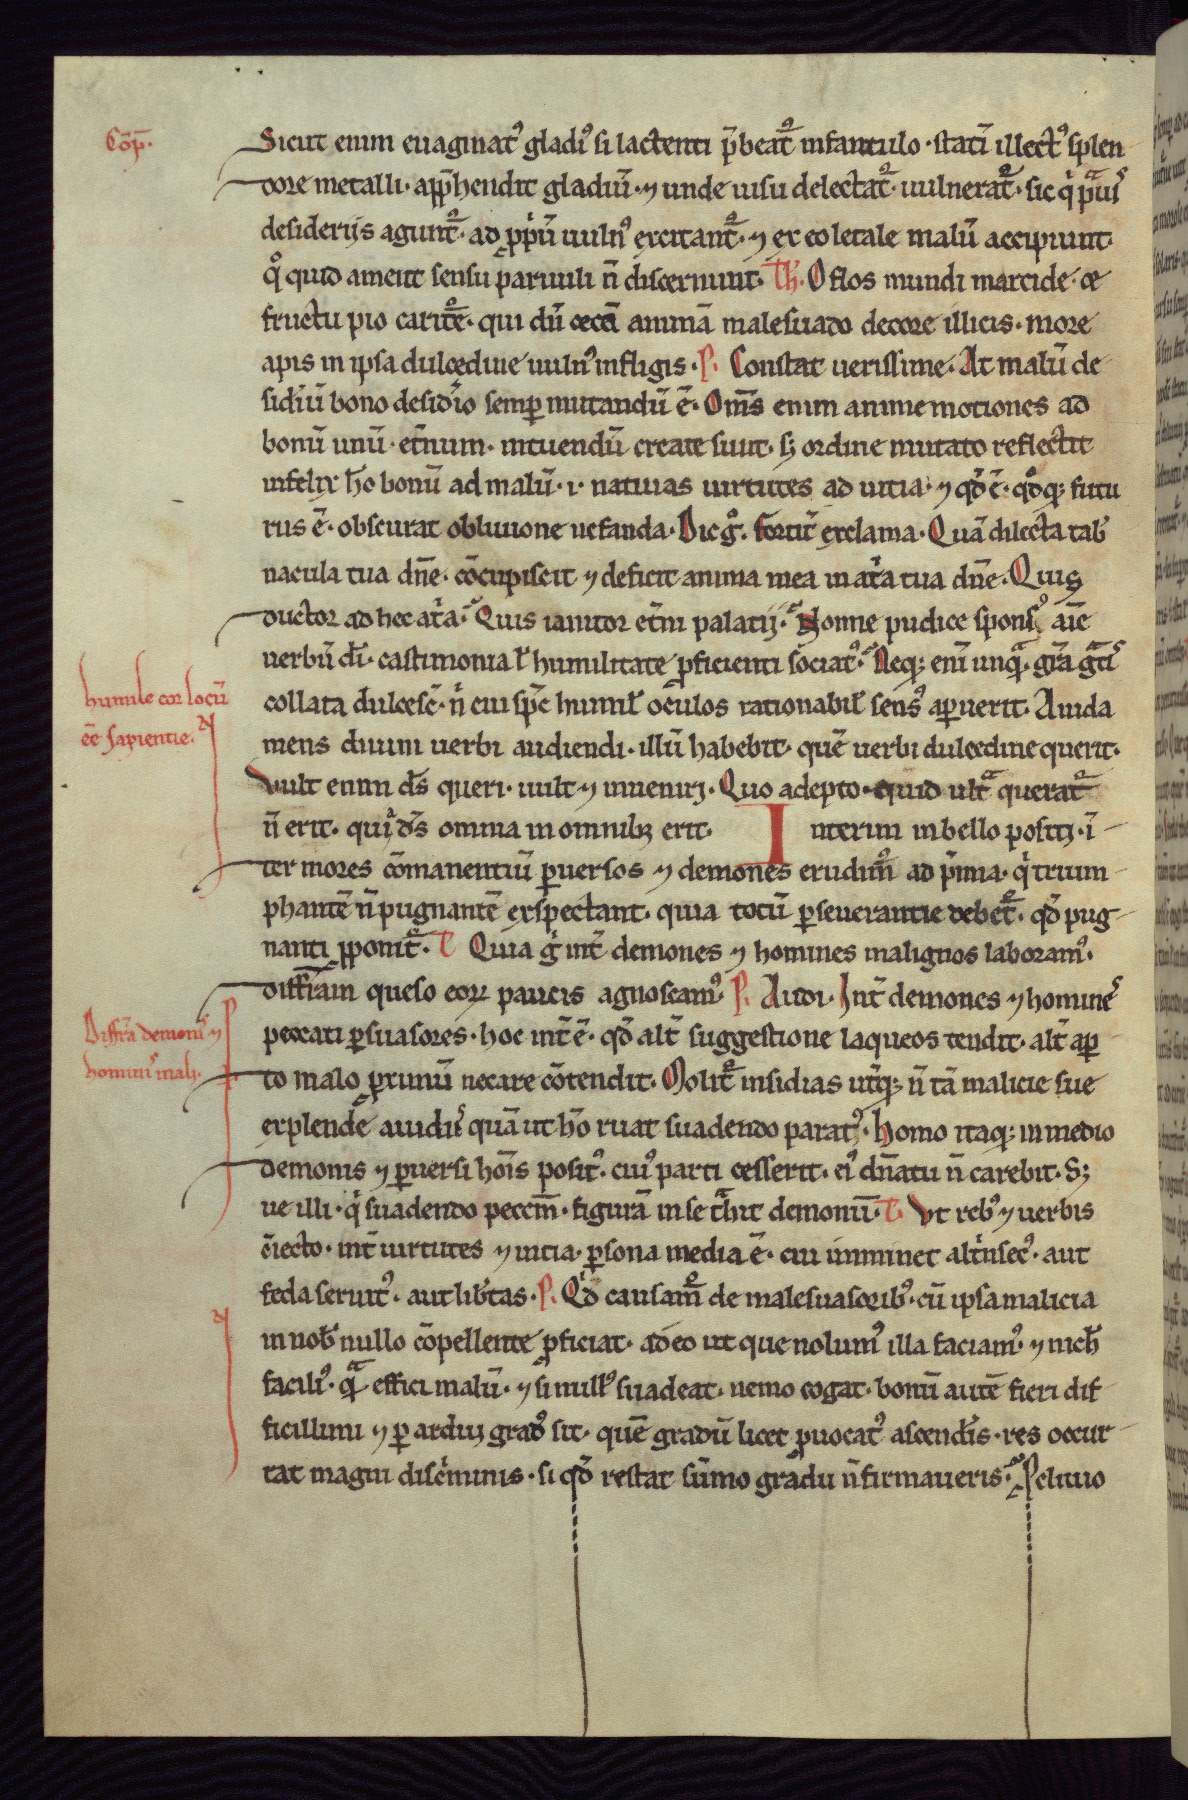 Cōp̄.
Sicut enim euaginatꝰ gladiꝰ si lactenti p̄beat᷑ infantulo · statī illectꝰ splen
dore metalli · app̄hendit gladiū · ⁊ unde uisu delectat᷑ · uulnerat᷑ · sic qͥ pͣuis
desiderijs agunt᷑ · ad ꝓpͥū uulnꝰ excitant᷑ · ⁊ ex eo letale malū accipiunt ·
qͦ quid ament sensu paruuli n̄ discernunt · Th̄. O flos mundi marcide · ce
fructu pio carit᷑e · qui dū cecā animā malesuado decore illicis · more
apis in ipsa dulcedine uulnꝰ infligis · P. Constat uerissime · At malū de
sidiū bono desidͥio semꝑ mutandū ē · Om̄s enim anime motiones ad
bonū unū · et̄num · intuendū create sunt · sꝫ ordine mutato reflectit
infelix hō bonū ad malū · i · natiuas uirtutes ad uitia · ⁊ qd̄ ē · qdͦqꝫ futu
rus ē · obscurat obliuione nefanda · Dic gͦ · fortit̄ exclama · Quā dilecta tab̄
nacula tua dn̄e · cōcupiscit ⁊ deficit anima mea in at̄a tua dn̄e · Quis
ductor ad hec at̄a · Quis ianitor et̄ni palatij · Nonne pudice sponsꝰ aīe
uerbū dī · castimonia ł humilitate ꝓficienti sociatꝰ · Neqꝫ enī unqͣ gr̄a gͣtis
collata dulcesc̄ · n̄ cui sp̄c humił oculos rationabił sensꝰ apuerit · Auida
mens diuini uerbi audiendi · illū habebit · quē uerbi dulcedine querit ·
Vult enim ds̄ queri · uult ⁊ inueniri · Quo adepto · quid ultͣ querat᷑
n̄ erit · quͥ ds̄ omnia in omnibꝫ erit · Interim in bello positis · ī
ter mores cōmanentiū ꝑuersos ⁊ demones erudim᷑ ad p̄mia · qͥ trium
phantē n̄ pugnantē exspectant · quia totū ꝑseuerantie debet᷑ · qd̄ pug
nanti ꝓponit᷑ · T Quia gͦ int̄ demones ⁊ homines malignos laboramꝰ ·
diffr̄iam queso eoꝝ paucis agnoscamꝰ · P. Audi · Int̄ demones ⁊ homines
peccati ꝑsuasores · hoc int̄ ē · qd̄ alt̄ suggestione laqueos tendit · alt̄ aꝑ
to malo ꝓximū necare cōtendit · Molit᷑ insidias ut̄qꝫ n̄ tā malicie sue
explende auidꝰ quā ut hō ruat suadendo paratꝰ · Homo itaqꝫ in medio
demonis ⁊ ꝑuersi hoīs positꝰ · cuiꝰ parti cesserit · eiꝰ dn̄atu n̄ carebit · Sꝫ
ue illi · qͥ suadendo pecc̄m · figurā in se tͣhit demonū · T. Vt rebꝰ ⁊ uerbis
c̄iecto · int̄ uirtutes ⁊ uitia · ꝑsona media ē · cui imminet alt̄nsecꝰ · aut
feda seruitꝰ · aut lib̄tas · P. Qd̄ causam᷑ de malesuasoribꝰ · cū ipsa malicia
in nob̄ nullo cōpellente ꝓficiat · adeo ut que nolumꝰ illa faciamꝰ · ⁊ nich̄
faciliꝰ · qͣ effici malū · ⁊ si nullꝰ suadeat · nemo cogat · bonū autē fieri dif
ficillimi ⁊ ꝑardui gradꝰ sit · quē gradū licet ꝓuocatꝰ ascend̄is · res occur
rat magni disc̄minis · si qd̄ restat sūmo gradu n̄ firmaueris · Pcliuo
humile cor locū
eē sapientie.
Diffr̄a demonū ⁊
hominū mali.